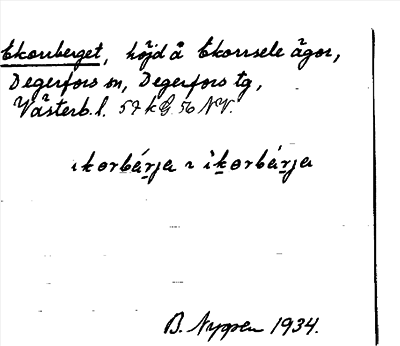 Ekorrberget, höjd å Ekorrsele ägor,
Degerfors sn, Degerfors tg,
Västerb. l. 57 k G. 56 NV.
ıkorbárja ı ikorbárja
B. Nygren 1934.